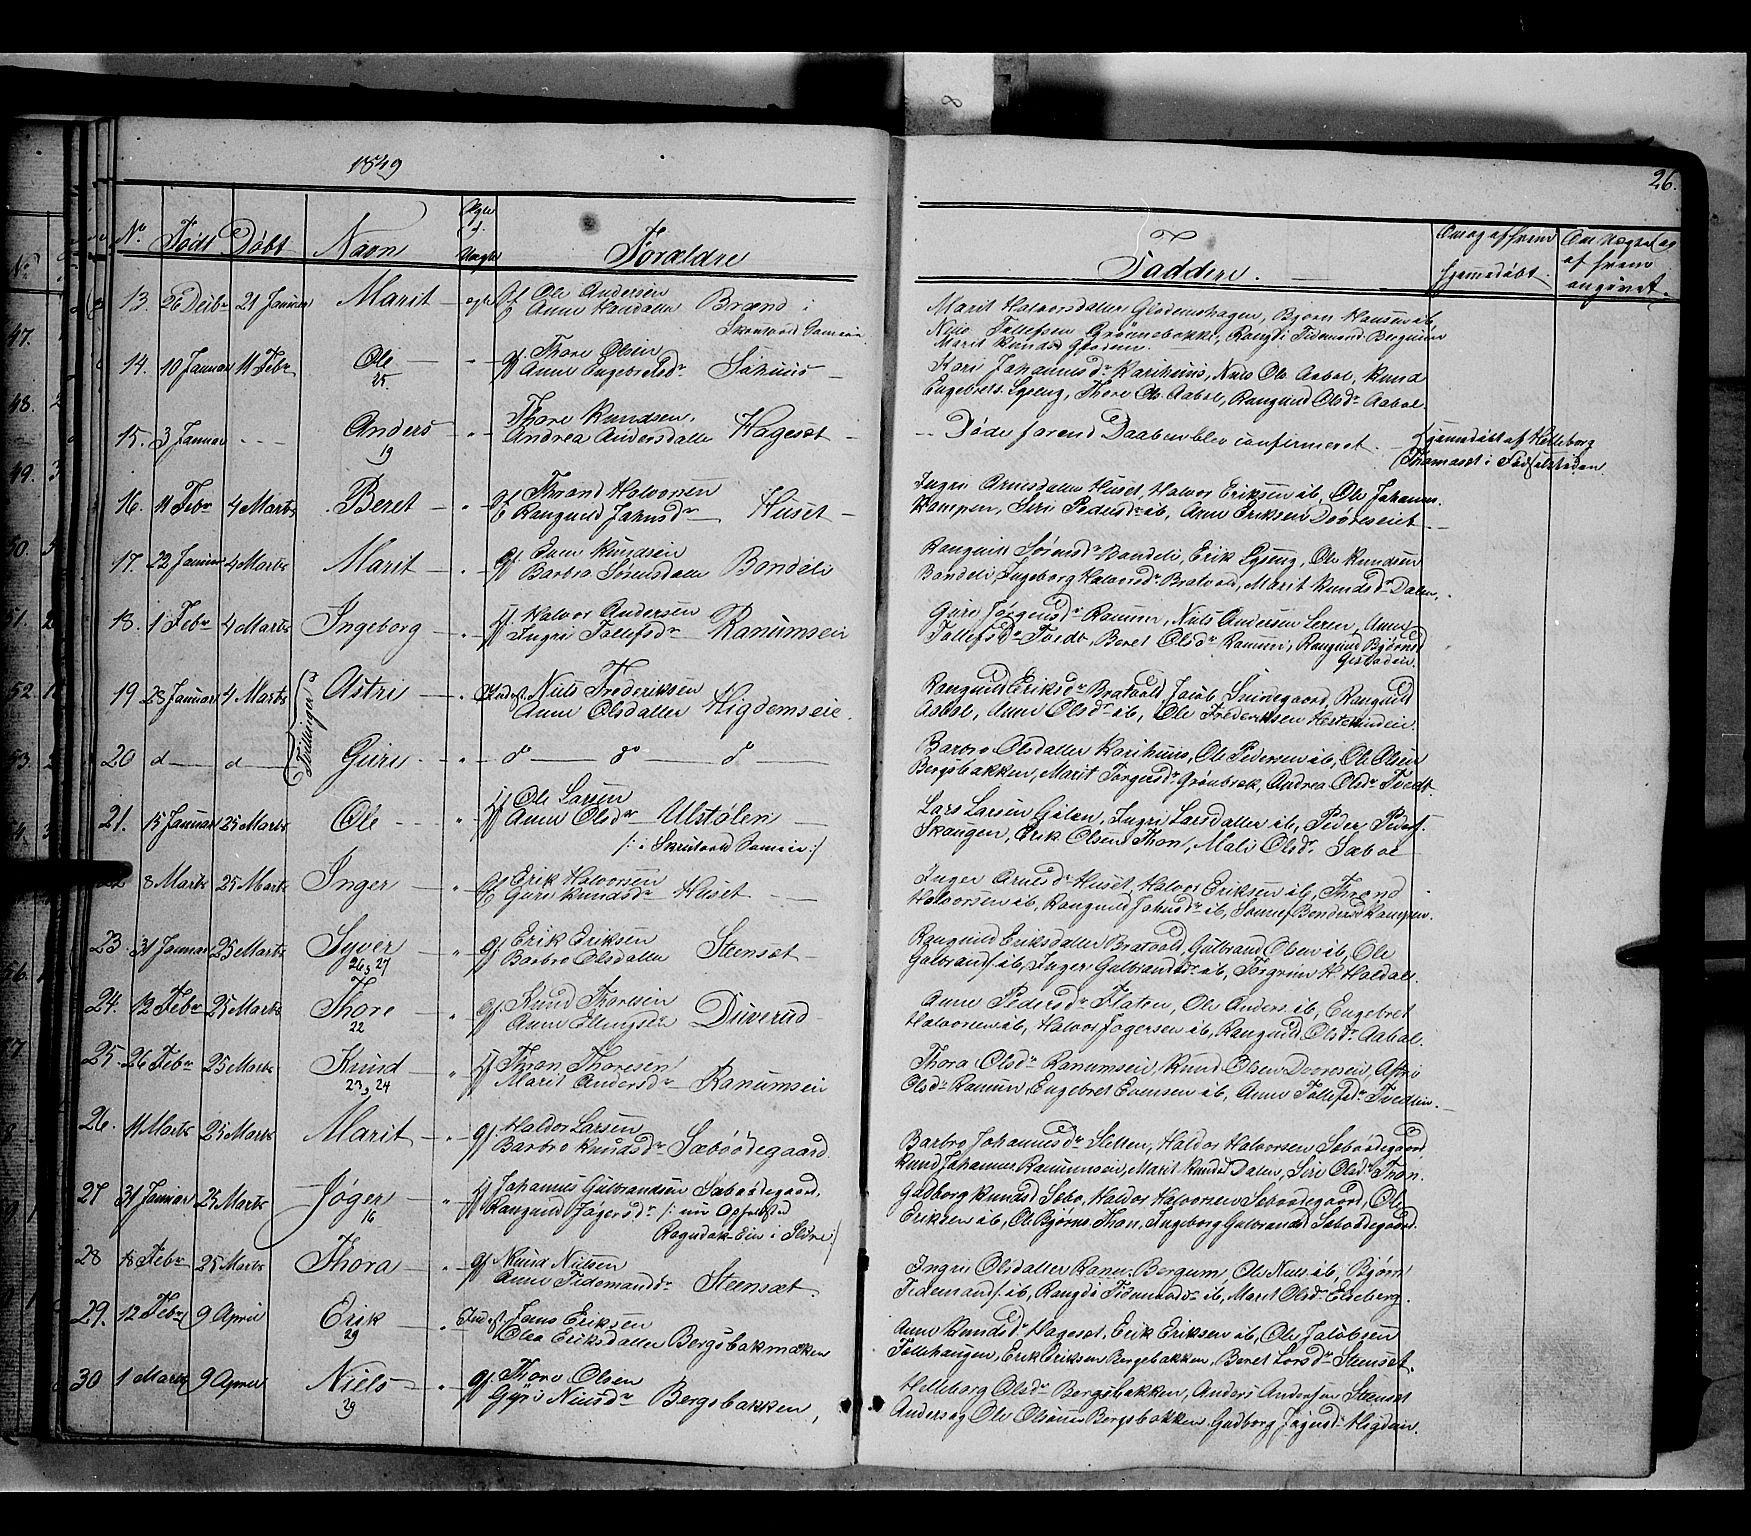 1849
26.
No Født Døbt Navn Ægte Foræld­re
Faddere. Om og af hvem hjemedøbt. Om Vægtet og af hvem angivet.
13. 26 Decbr 21 Januar Marit ægte Ole Andersen Brænd i
Anne
Marit Halvorsdatter Glødemshagen, Bjørn Hansen ib,
Nils Tollefsen Grønnebakke, Rangdi Tidemand Bergum
Marit Knudsd
14. 10 Januar 11 Febr Ole Gf Thore Olsen
25. Anne Engebretsdr Søhuus
Kari Johannesdr Karihuus, Niels Ols Aabøl, Knud
Engebrets. Lyseng, Thore Ols. Aabøl, Rangnid Olsdr Aabøl.
15. 3 Januar - - - Anders Thore Knudsen
19 Andrea Andersdatter Hageset
- - Døde førend Daaben blev confirmeret. Hjemmdøbt af Helleborg
Thomasset i Fødselsteden
16. 11 Febr 4 Marts Beret Gf Thrond Halvorsen
Rangnid Jahnsdr Huset
Ingri Arnesdatter Huset, Halvor Eriksen ib, Ole Johann.
Kampen, Siri Pedersdr ib, Anne Eriksen
17. 22 Januar 4 Marts Marit Gf Even Knudsen
Barbro Sørensdatter Bondeli
Rangnid Sørensdr Bondeli, Erik Lyseng, Ole Knudsen
Bondeli, Ingeborg Halvorsdr Bratvold, Marit Knudsdr Dalen,
18. 1 Febr 4 Marts Ingeborg Gf Halvor Andersen
Ingri Tollefsdr Ranumseie
Guri Jørgensdr Ranum, Nils Andersen Leren, Anne
Tollefsdr Tvedt, Beret Olsdr Ranum, Rangnid Bjørnsd
19 28 Januar 4 Marts Tvillinger Astri Indst. Niels Frederiksen
Anne Olsdatter Higdemseie.
Rangnid Eriksdr Bratvold, Jacob Snivegaard, Rangnid
Aabøl, Anne Olsdr ib, Ole Frederiksen
20 d d Guri do do do
Barbro Olsdatter Karihuus, Ole Pedersen ib, Ole Olsen
Bergsbakken, Marit Torgersdr Grønbrek, Andrea Olsdr Tvedt.
21. 15 Januar 25 Marts Ole Gf Ole Larsen
Anne Olsdr Ulstølen
/: i Skrutvold :/
Lars Larsen Ulølen, Ingri Larsdatter ib, Peder Peders.
Skougen, Erik Olsen Thon, Mali Olsdr Sæbøe
8 Marts 25 Marts Inger Gf Erik Halvorsen
Guri Knudsdr Huset
Inger Arnesdr Huset, Halvor Eriksen ib, Thrond
Halvorsen ib, Rangnid Jahnsdr ib, Kampen.
23. 31 Januar 25 Marts Syver Gf Erik Eriksen
26, 27 Barbro Olsdatter Steensæt
Rangnid Eriksdatter Bratvold, Gulbrand Olsen ib, Ole
Gulbrands. ib, Inger Gulbrandsdr ib, Torgrim H. Haldal.
24. 12 Febr 25 Marts Thore Gf Knud Thoresen
22 Anne Ellingsdr Duverud
Anne Pedersdr Flaten, Ole Anders. ib, Engebret
Halvorsen ib, Halvor Jøgersen ib, Rangnid Olsdr Aabøl.
25. 26 Febr 25 Marts Knud Gf Thron Thoresen
23, 24 Marit Andersdr Ranumseie
Thora Olsdr Ranumseie, Knud Olsen, Astri
Olsdr Ranum, Engebret Evensen ib, Anne Tollefsdr Tvedten.
26. 11 Marts 25 Marts Marit Gf Haldor Larsen
Barbro Knudsdr Sæbøødegaard
Barbro Johannesdr Sletten, Haldor Halvorsen Sæbøødegaard,
Knud Johannes. Ranumseie, Marit Knudsd Dalen, Siri Olsdr Thon.
27 31 Januar 25 Marts Jøger Gf Johannes Gulbrandsen Sæbøødegaard,
16 Rangnid Jøgersdr /: nu Opholdsted
Rogndok Eie i Slidre :/
Gudborg Knudsd Sæbø, Haldor Halvorsen Sæbøødegaard, Ole
Eriksen ib, Ole Bjørns. Thon, Ingeborg Gulbrandsd Sæbøødegaard.
28 18 Febr 25 Marts Thora Gf Knud Nielsen
Anne Tidemandsdr Steensæt.
Ingri Olsdatter Bergum, Ole Niels. ib, Bjørn
Tidemands. ib, Rangdi Tidemandsdr ib, Marit Olsdr Egeberg.
29. 12 Febr 9 April Erik Indst. Jens Eriksen
29 Olea Eriksdatter Bergsbakmæken
Anne Knudsdr Hageset, Erik Eriksen ib, Ole Jacobsen
Tollehaugen, Erik Eriksen Bergsbakken, Beret Larsdr Steenset.
30 1 Marts 9 April Niels Gf Thore Olsen
29 Gyri Nielsdr Bergsbakken,
Helleborg Olsdr Bergsbakken, Anders Andersen Steenset
Anders og Ole Olsønner Bergsbakken, Gudborg Jøgersdr Higdem.